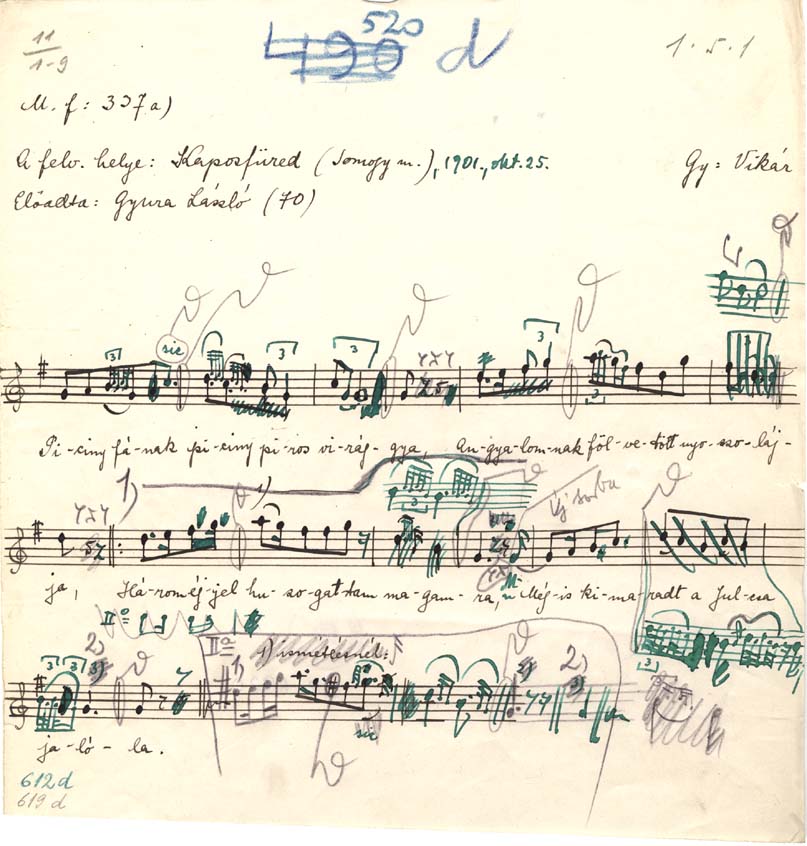 11
1-9
520
490 d
1.5.1
M. f: 337a)
A felv. helye: Kaposfüred (Somogy m.), 1901., okt. 25.
Gy: Vikár
Előadta: Gyura László (70)
sic
Pi-ciny fá-nak pi-ciny pi-ros vi-rág-gya, An-gya-lom-nak föl-ve-tött nyo-szo-láj-
1)
Új sorba
ja, Há-rom éj-jel hu-szo-gat-tam ma-gam-ra, Még-is ki-ma-radt a Jul-csa
2)
1) ismétlésnél:
2)
sic
ja-ló-la.
612 d
619 d